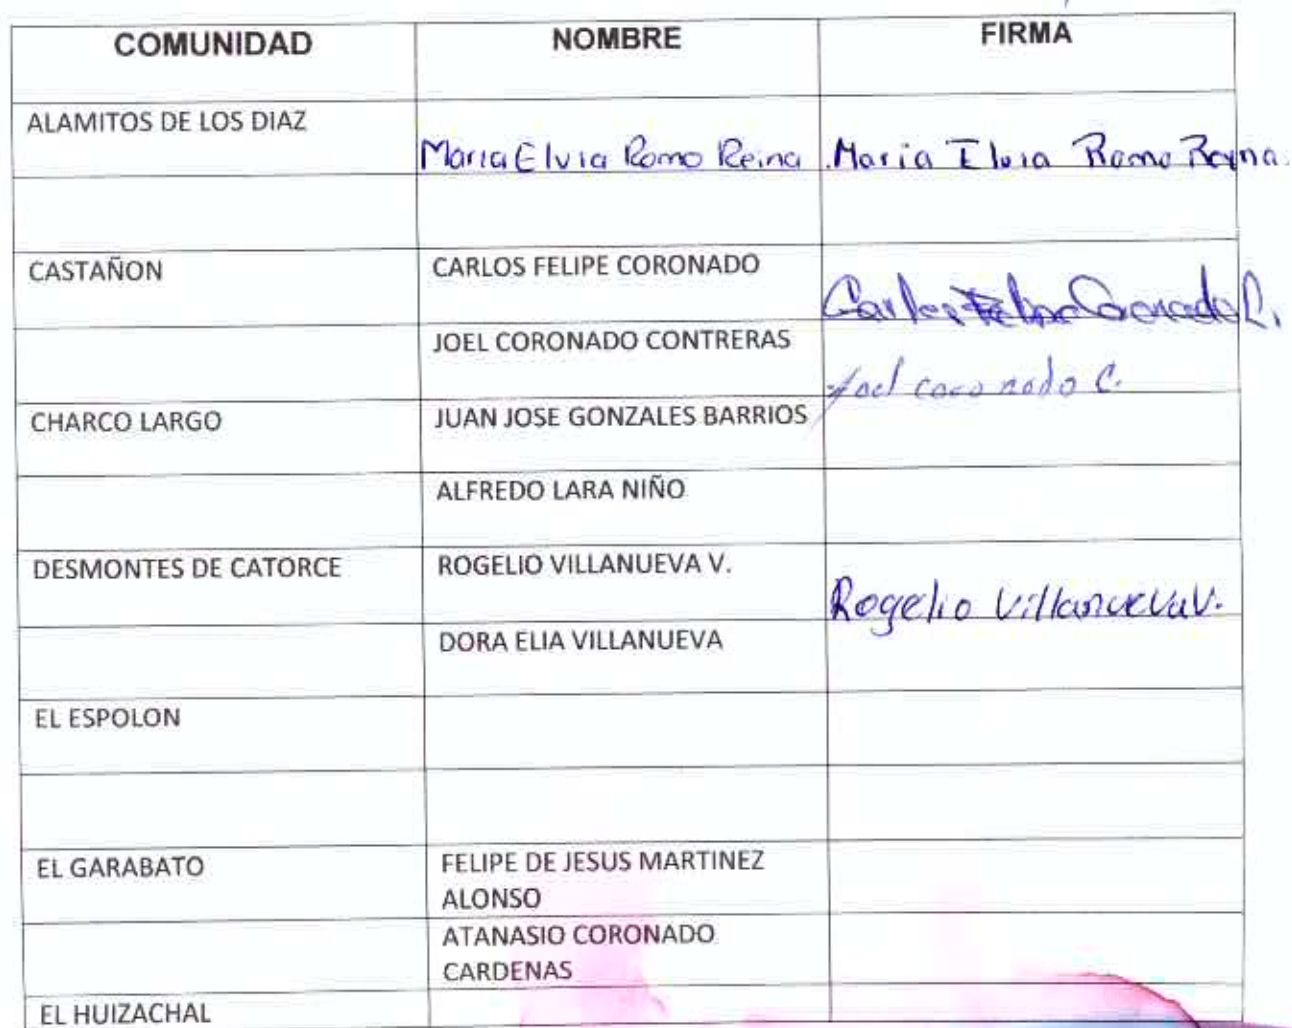 COMUNIDAD NOMBRE FIRMA
ALAMITOS DE LOS DIAZ
Maria Elvia Romo Reina Maria Elvia Romo Reyna.
CASTAÑON CARLOS FELIPE CORONADO
Carlos Felipe Coronado C.
JOEL CORONADO CONTRERAS
Joel coronado C.
CHARCO LARGO JUAN JOSE GONZALES BARRIOS
ALFREDO LARA NIÑO
DESMONTES DE CATORCE ROGELIO VILLANUEVA V.
Rogelio Villanueva V.
DORA ELIA VILLANUEVA
EL ESPOLON
EL GARABATO FELIPE DE JESUS MARTINEZ
ALONSO
ATANASIO CORONADO
CARDENAS
EL HUIZACHAL